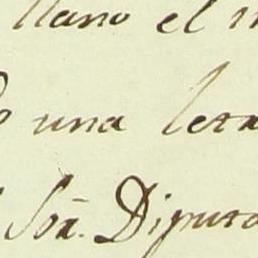 llano el
una letra
Sōr. Diputa